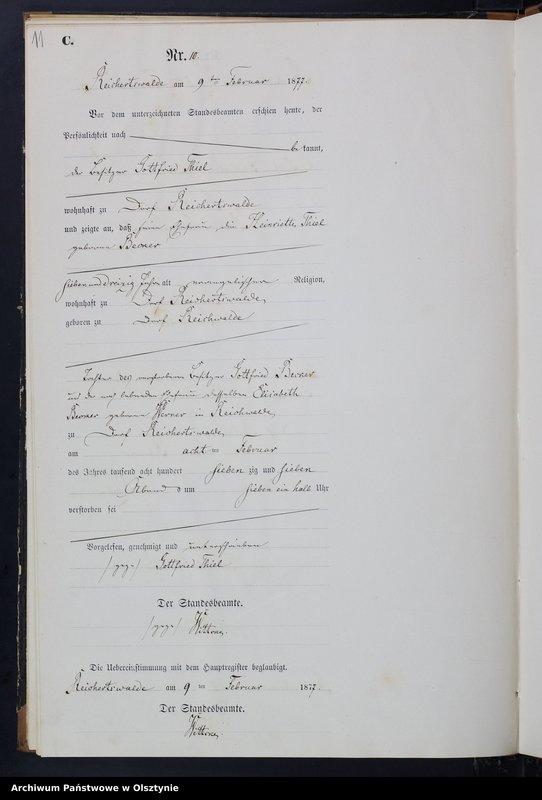 11
C.
Nr. 10.
Reichertswalde am 9ten Februar 1877.
Vor dem unterzeichneten Standesbeamten erschien heute, der
Persönlichkeit nach
be kannt,
der Besitzer Gottfried Thiel
wohnhaft zu Dorf Reichertswalde
und zeigte an, daß seine Ehefrau die Henriette Thiel
geborene Berner
sieben und dreizig Jahre alt evangelischer Religion,
wohnhaft zu Dorf Reichertswalde,
geboren zu Dorf Reichwalde
Tochter des verstorbenen Besitzer Gottfried Berner
und der noch lebenden Ehefrau desselben Elisabeth
Berner geborene Werner in Reichwalde,
zu Dorf Reichertswalde,
am acht ten Februar
des Jahres tausend acht hundert sieben zig und sieben
Abend s um sieben ein halb Uhr
verstorben sei
Vorgelesen, genehmigt und unterschrieben
/gez./ Gottfried Thiel
Der Standesbeamte.
/gez./
Die Uebereinstimmung mit dem Hauptregister beglaubigt.
Reichertswalde am 9 ten Februar 1877.
Der Standesbeamte.
Archiwum Państwowe w Olsztynie